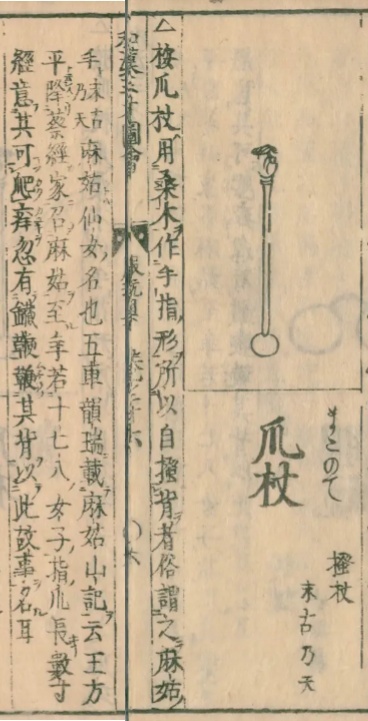 まこのて
爪杖
搔杖
末古乃天
△按爪杖用桑木作手指形所以自搔背者俗謂之麻姑
和漢三才圖會
手末古乃天麻姑仙女名也五車韻瑞載麻姑山記云王方
平降蔡經家召麻姑至手若十七八女子指爪長數寸
經意其可爬痒忽有鐵鞭鞭其背以此故事名耳